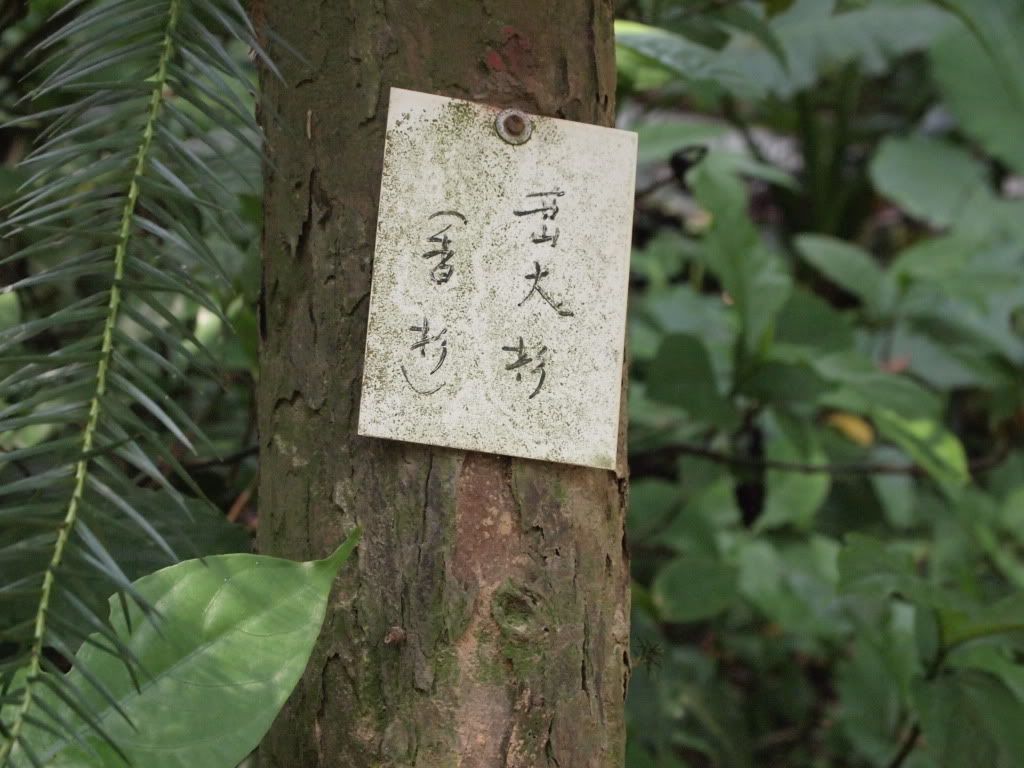 峦大杉
(香杉)